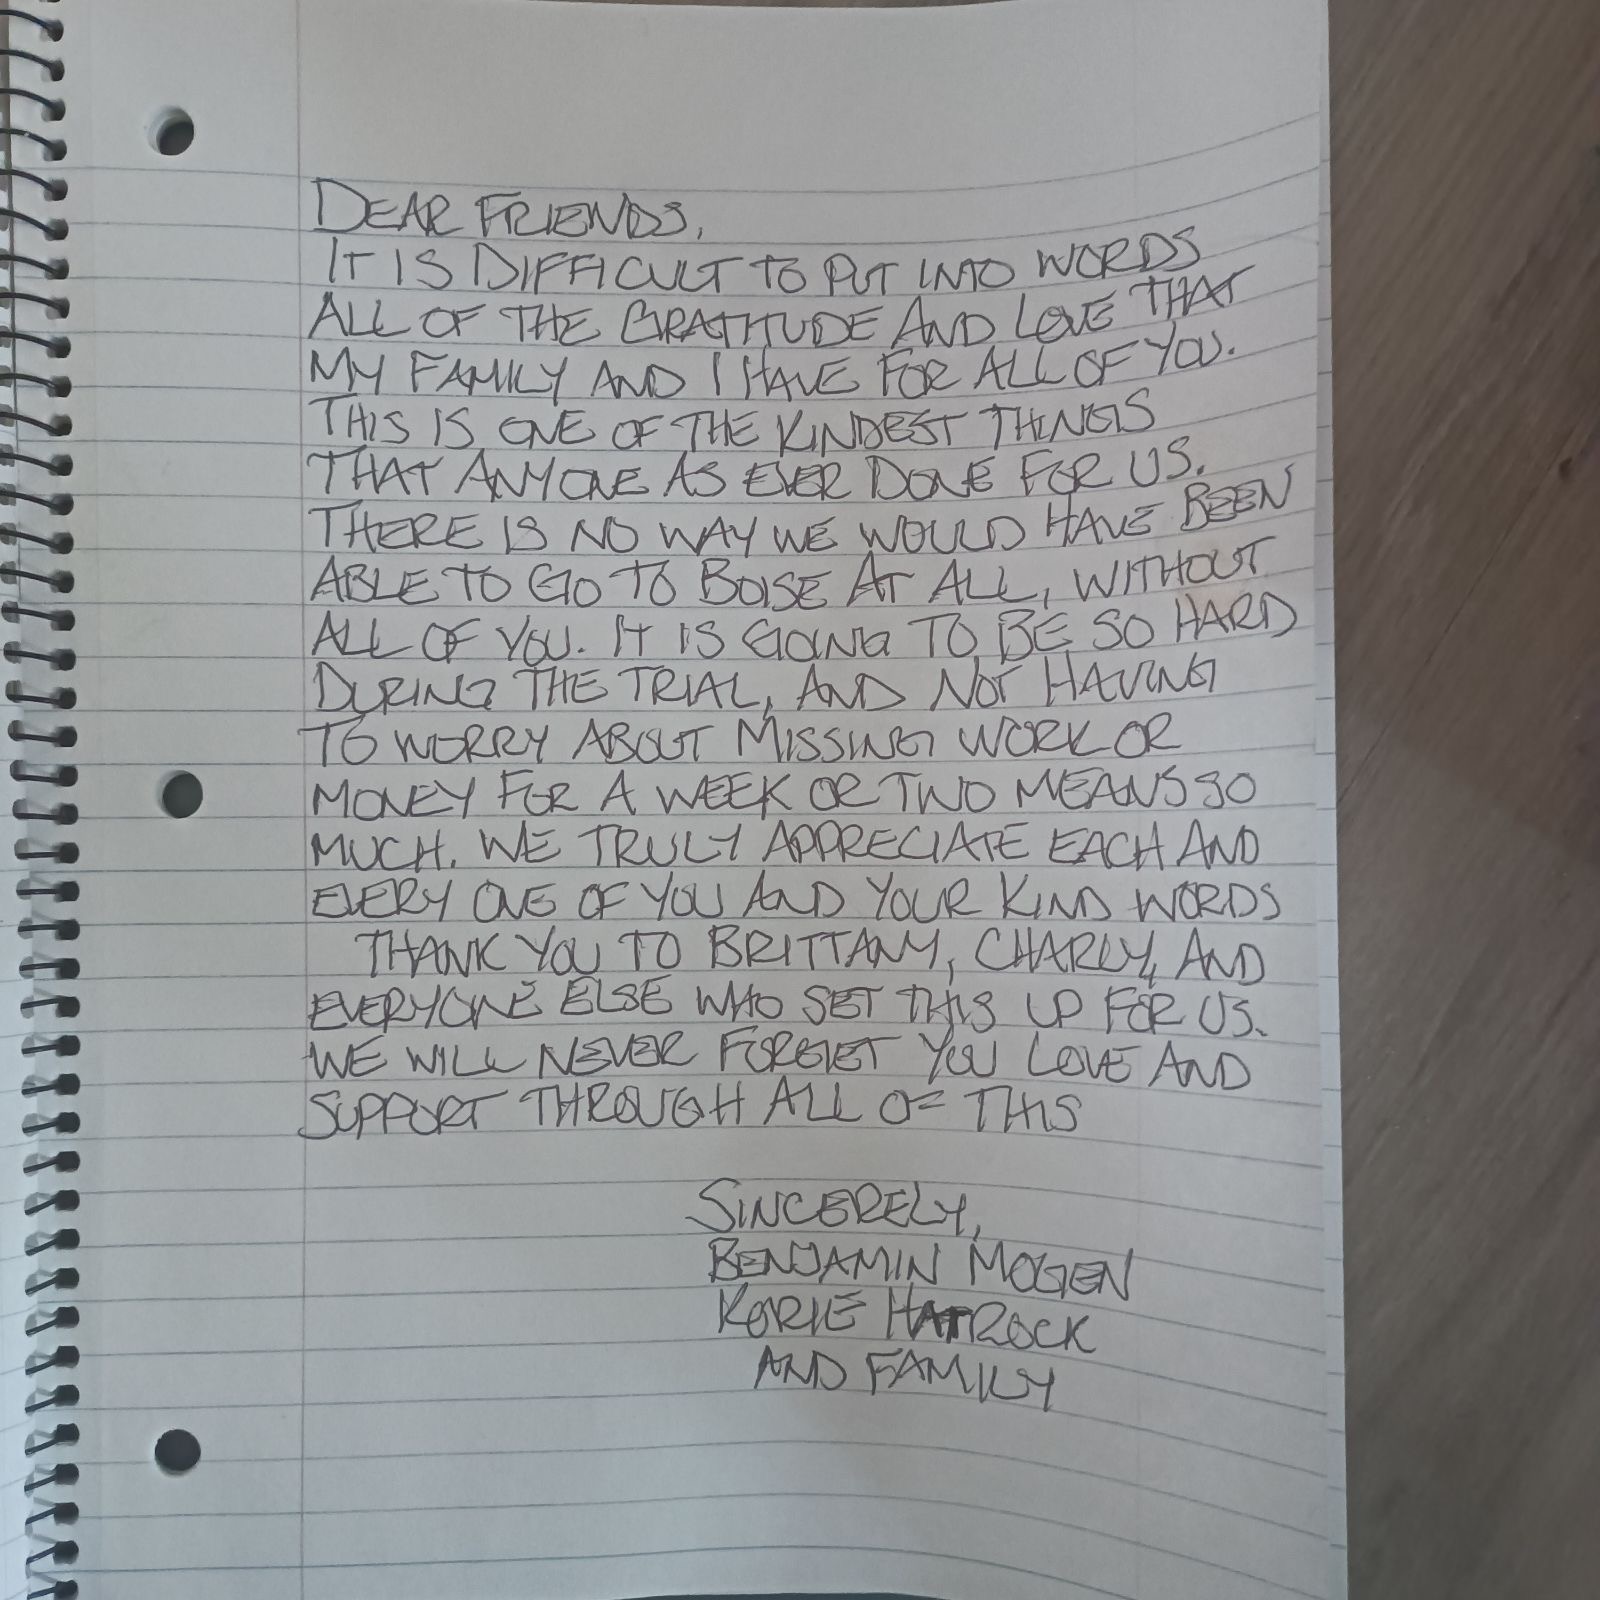 DEAR FRIENDS,
IT IS DIFFICULT TO PUT INTO WORDS
ALL OF THE GRATITUDE AND LOVE THAT
MY FAMILY AND I HAVE FOR ALL OF YOU.
THIS IS ONE OF THE KINDEST THINGS
THAT ANYONE AS EVER DONE FOR US.
THERE IS NO WAY WE WOULD HAVE BEEN
ABLE TO GO TO BOISE AT ALL, WITHOUT
ALL OF YOU. IT IS GOING TO BE SO HARD
DURING THE TRIAL, AND NOT HAVING
TO WORRY ABOUT MISSING WORK OR
MONEY FOR A WEEK OR TWO MEANS SO
MUCH. WE TRULY APPRECIATE EACH AND
EVERY ONE OF YOU AND YOUR KIND WORDS
THANK YOU TO BRITTANY, CHARLY, AND
EVERYONE ELSE WHO SET THIS UP FOR US.
WE WILL NEVER FORGET YOU LOVE AND
SUPPORT THROUGH ALL OF THIS
SINCERELY,
BENJAMIN MOGEN
KORIE HATROCK
AND FAMILY